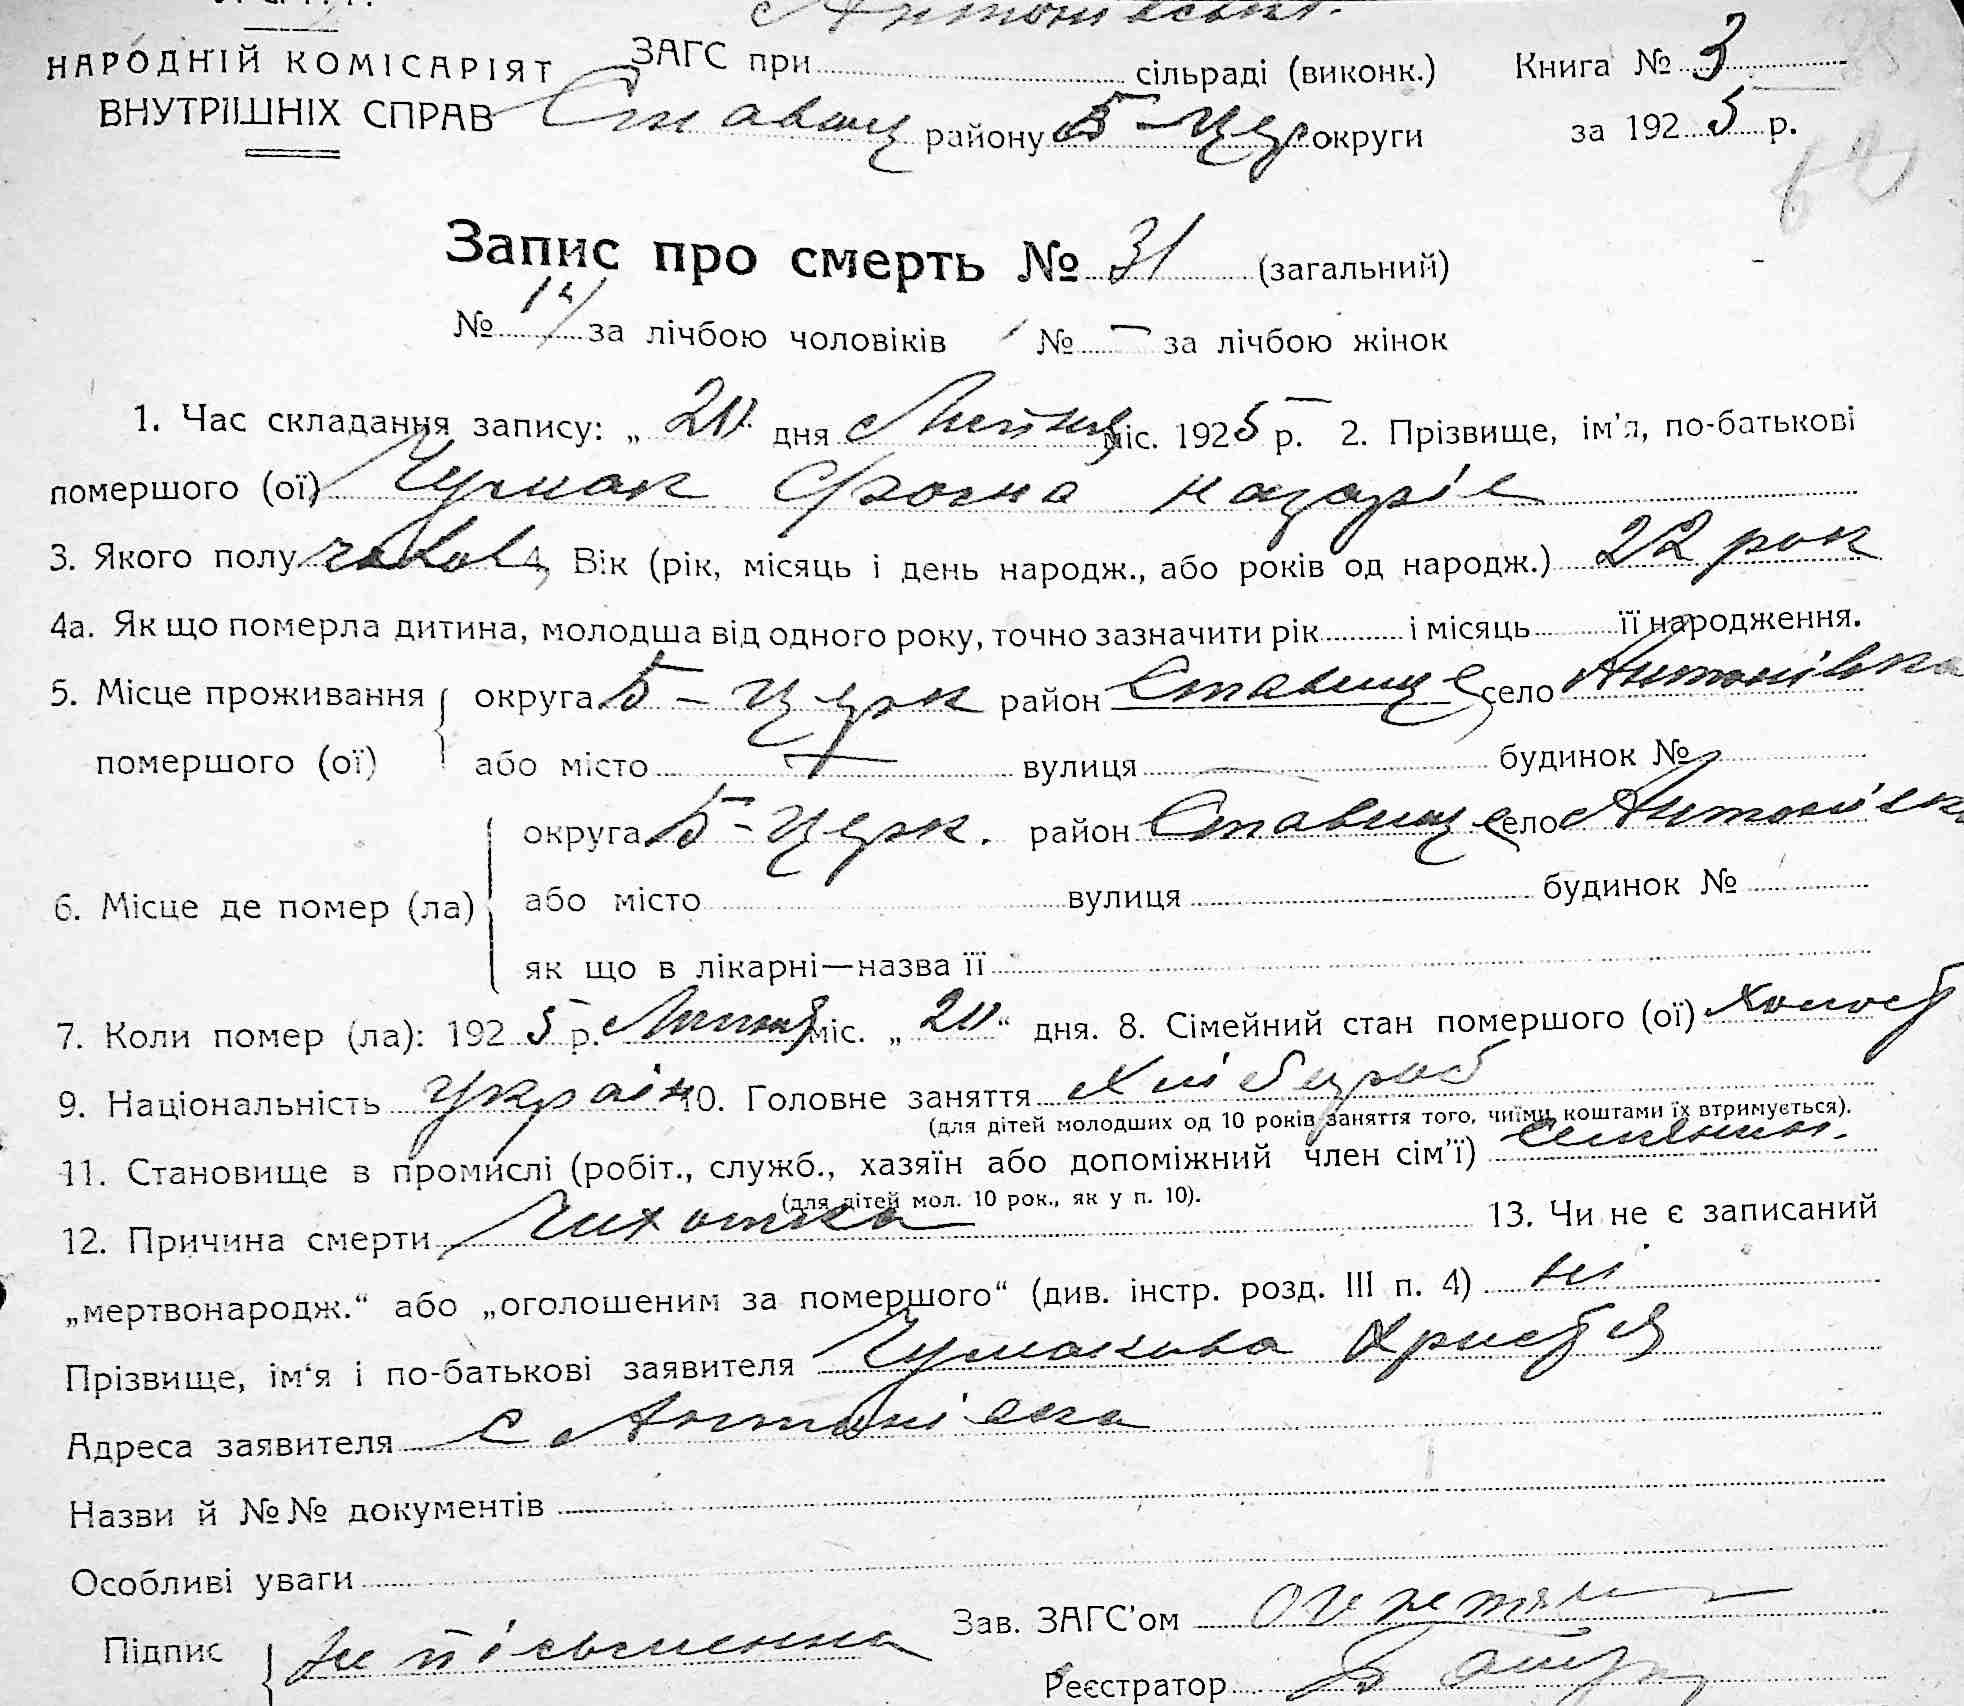 НАРОДНІЙ КОМІСАРІЯТ
ВНУТРІШНІХ СПРАВ
ЗАГС при Антонівські. сільраді (виконк.) Книга № 3
Ставищ району Б-Цер округи за 1925 р.
Запис про смерть № 31 (загальний)
№ за лічбою чоловіків № — за лічбою жінок
1. Час складання запису: „ 20 дня Липня міс. 1925 р. 2. Прізвище, ім'я, по-батькові
помершого (ої) Чумак Фома Назарів
3. Якого полу чолов 4. Вік (рік, місяць і день народж., або років од народж.) 22 рок
4а. Як що померла дитина, молодша від одного року, точно зазначити рік і місяць її народження.
5. Місце проживання помершого (ої) округа Б-Церк район Ставище село Антонівка
або місто — вулиця — будинок №
6. Місце де помер (ла) округа Б-Церк. район Ставище село Антонівка
або місто вулиця будинок №
як що в лікарні—назва її
7. Коли помер (ла): 1925 р. Липня міс. „ 20 “ дня. 8. Сімейний стан помершого (ої) холост
9. Національність україн 10. Головне заняття Хлібороб
(для дітей молодших од 10 років заняття того, чиїми коштами їх втримується).
11. Становище в промислі (робіт., служб., хазяїн або допоміжний член сім'ї)
(для дітей мол. 10 рок., як у п. 10).
12. Причина смерти Чихотка 13. Чи не є записаний
„мертвонародж.“ або „оголошеним за помершого“ (див. інстр. розд. III п. 4) ні
Прізвище, ім'я і по-батькові заявителя Чумакова Христя
Адреса заявителя с Антонівка
Назви й №№ документів
Особливі уваги
Зав. ЗАГС'ом
Підпис не письменна
Реєстратор